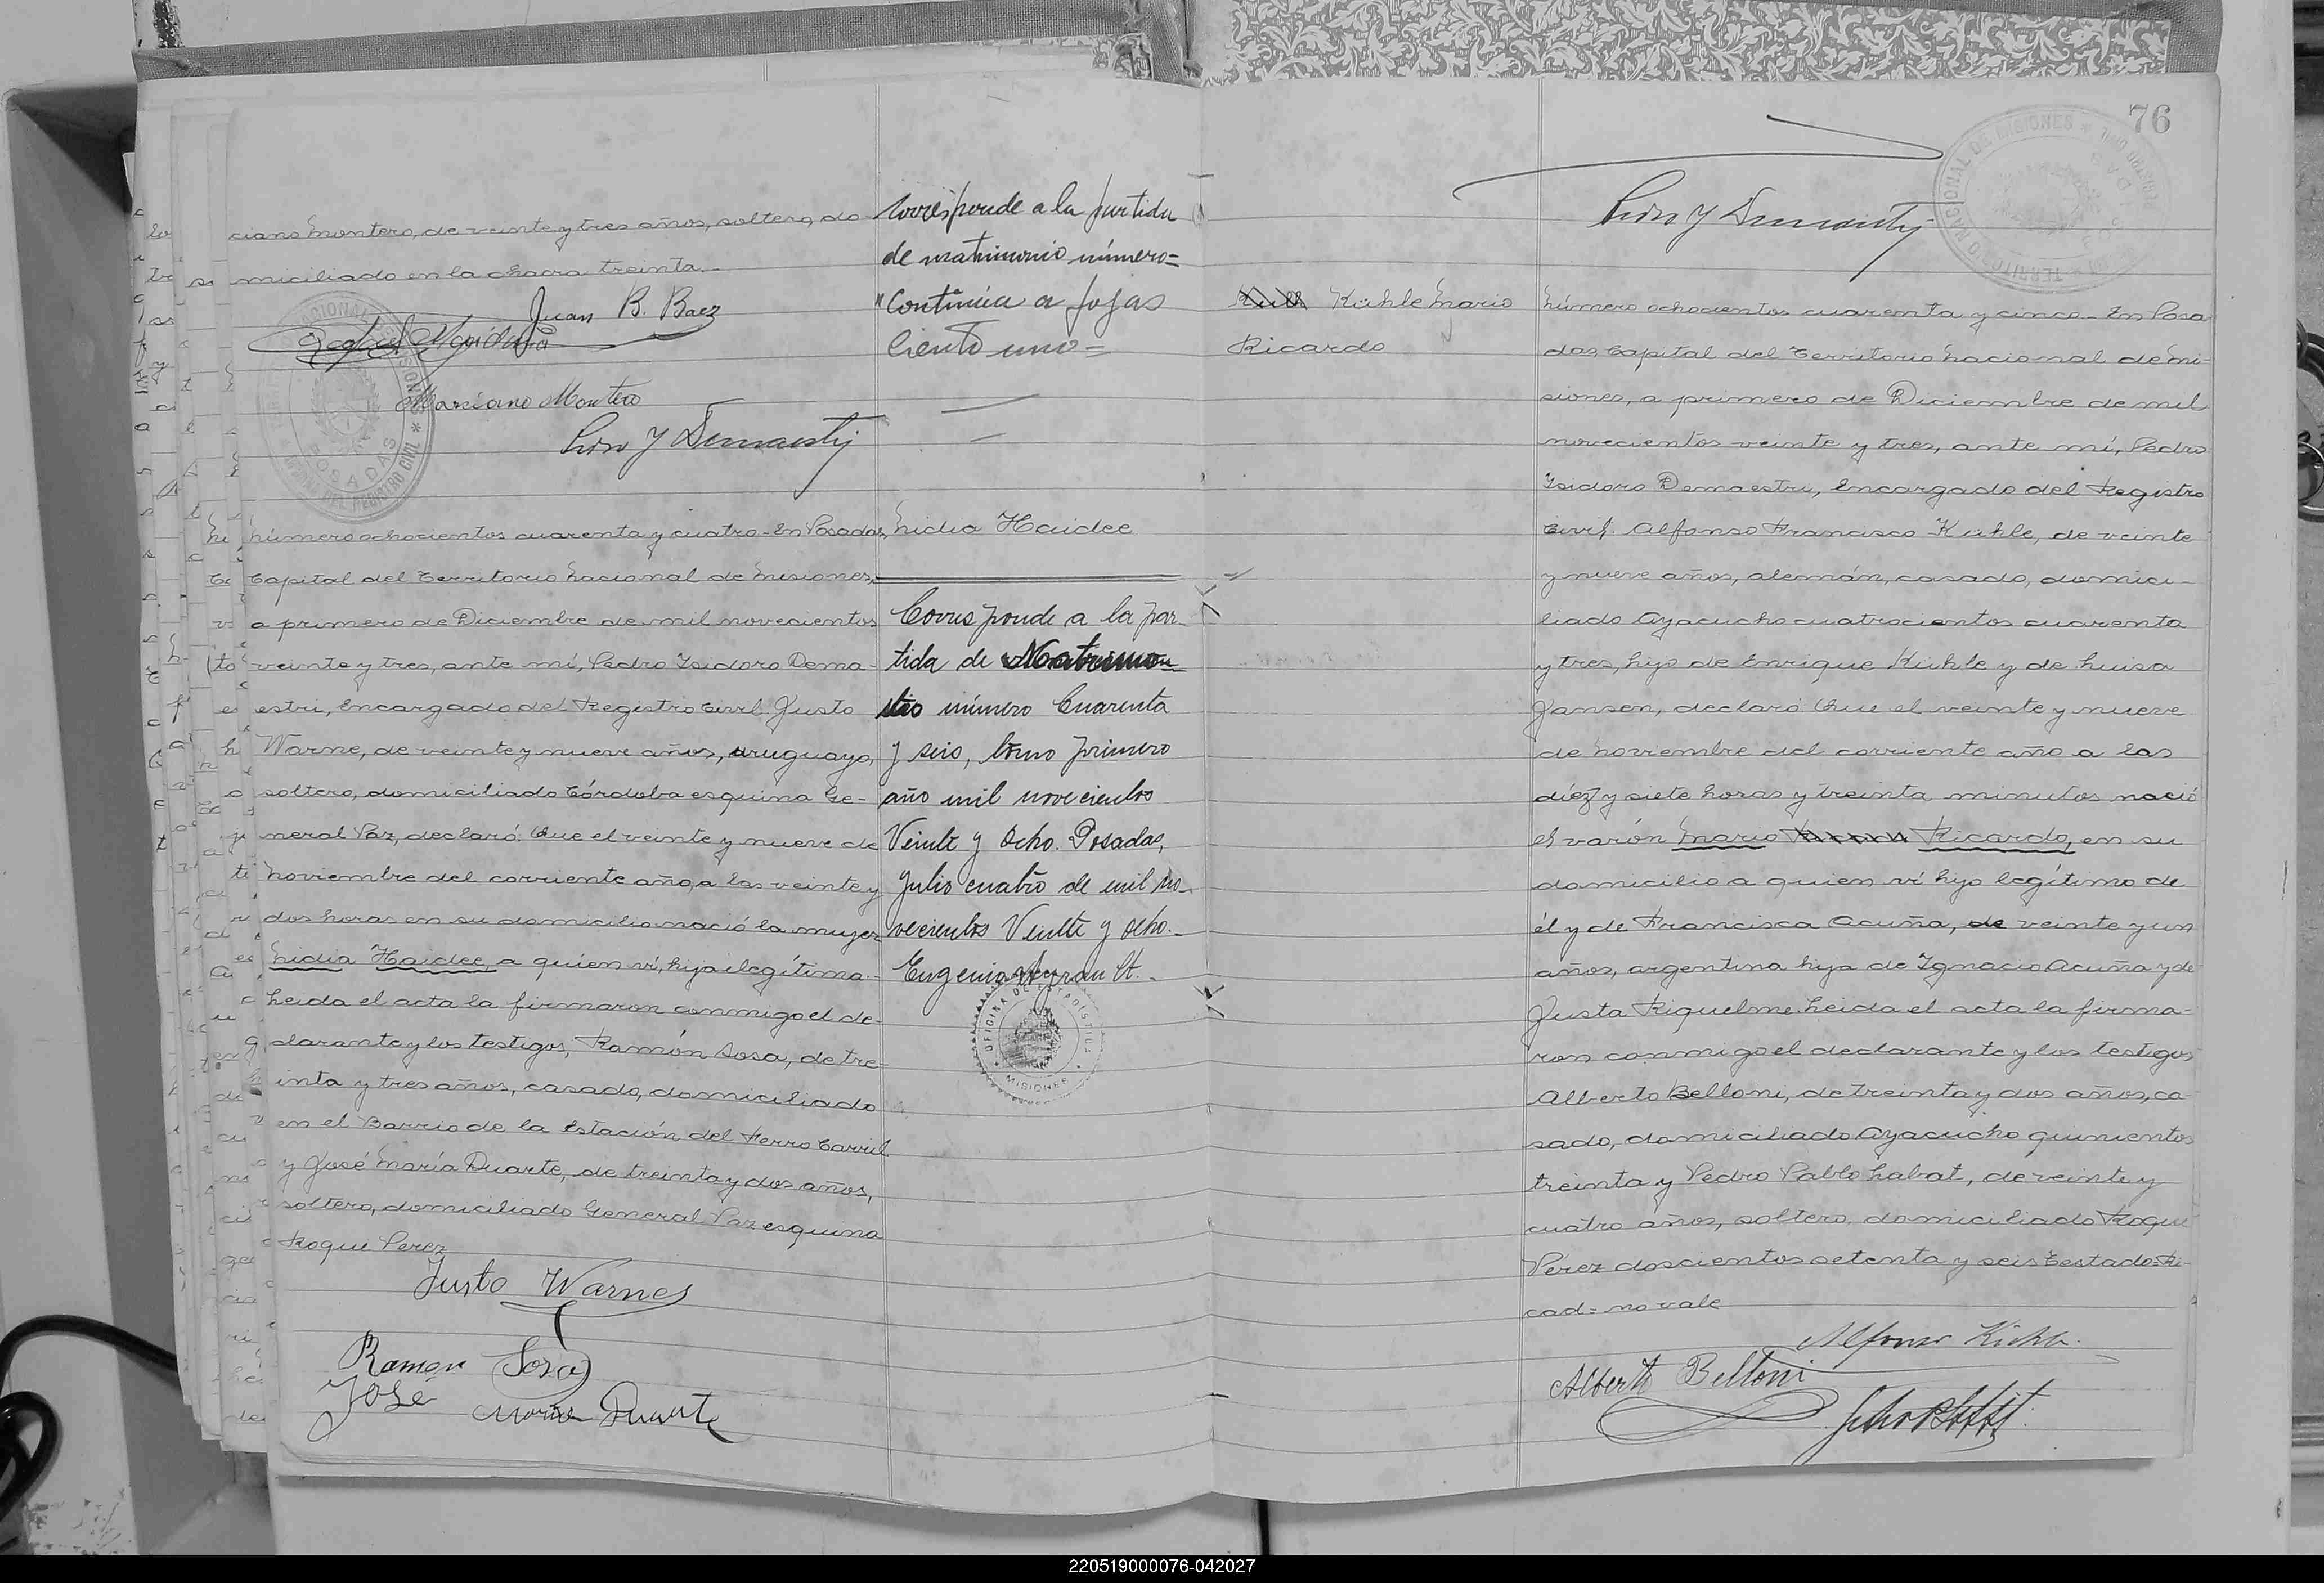 ciano Montero, de veinte y tres años, soltero, do-
miciliado en la chacra treinta.-
Juan B. Baez
Marciano Montero
Número ochocientos cuarenta y cuatro - En Posadas,
Capital del Territorio Nacional de Misiones,
a primero de Diciembre de mil novecientos
veinte y tres, ante mí, Pedro Isidoro Dema-
estri, Encargado del Registro Civil Justo
Warne, de veinte y nueve años, uruguayo,
soltero, domiciliado Córdoba esquina Ge-
neral Paz, declaró: Que el veinte y nueve de
Noviembre del corriente año, a las veinte y
dos horas en su domicilio nació la mujer
Nidia Haidee, a quien ví, hija ilegítima-
Leida el acta la firmaron conmigo el de-
clarante y los testigos, Ramón Sosa, de tre-
inta y tres años, casado, domiciliado
en el Barrio de la Estación del Ferro Carril
y José María Duarte, de treinta y dos años,
soltero, domiciliado General Paz esquina
Roque Perez
Justo Warnes
Ramon Sosa
José María Duarte
Corresponde a la partida
de matrimonio número=
"Continúa a fojas
Ciento uno=
Nidia Haidee
Corresponde a la par-
tida de Matrimon
número Cuarenta
y seis, tomo primero
año mil novecientos
Veinte y Ocho. Posadas,
Julio cuatro de mil no-
vecientos Veinte y Ocho.-
OFICINA DE
MISIONES
76
Kuhle Mario
Ricardo
Número ochocientos cuarenta y cinco - En Posa
das Capital del Territorio Nacional de Mi-
siones, a primero de Diciembre de mil
novecientos veinte y tres, ante mí, Pedro
Isidoro Demaestri, Encargado del Registro
Civil Alfonso Francisco Kuhle, de veinte
y nueve años, alemán, casado, domici-
liado Ayacucho cuatrocientos cuarenta
y tres, hijo de Enrique Kuhle y de Luisa
Jansen, declaró: Que el veinte y nueve
de Noviembre del corriente año a las
diéz y siete horas y treinta minutos nació
el varón Mario Ricardo, en su
domicilio a quien ví hijo legítimo de
él y de Francisca Acuña, de veinte y un
años, argentina hija de Ignacio Acuña y de
Justa Riquelme. Leida el acta la firma-
ron conmigo el declarante y los testigos
Alberto Belloni, de treinta y dos años, ca-
sado, domiciliado Ayacucho quinientos
treinta y Pedro Pablo Labat, de veinte y
cuatro años, soltero, domiciliado Roque
Pérez doscientos setenta y seis Testado: Ri-
cad= no vale
Alberto Belloni
220519000076-042027